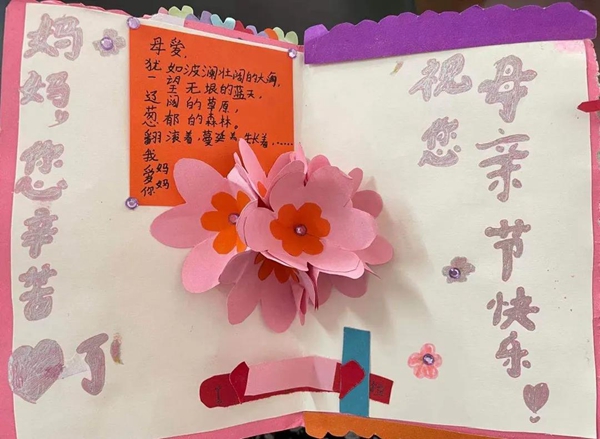 妈妈,您辛苦了
母爱,
犹如波澜壮阔的大海,
一望无垠的蓝天,
辽阔的草原,
葱郁的森林。
翻滚着,蔓延着,生长着,……
我
爱妈
你妈
祝您
母亲节快乐